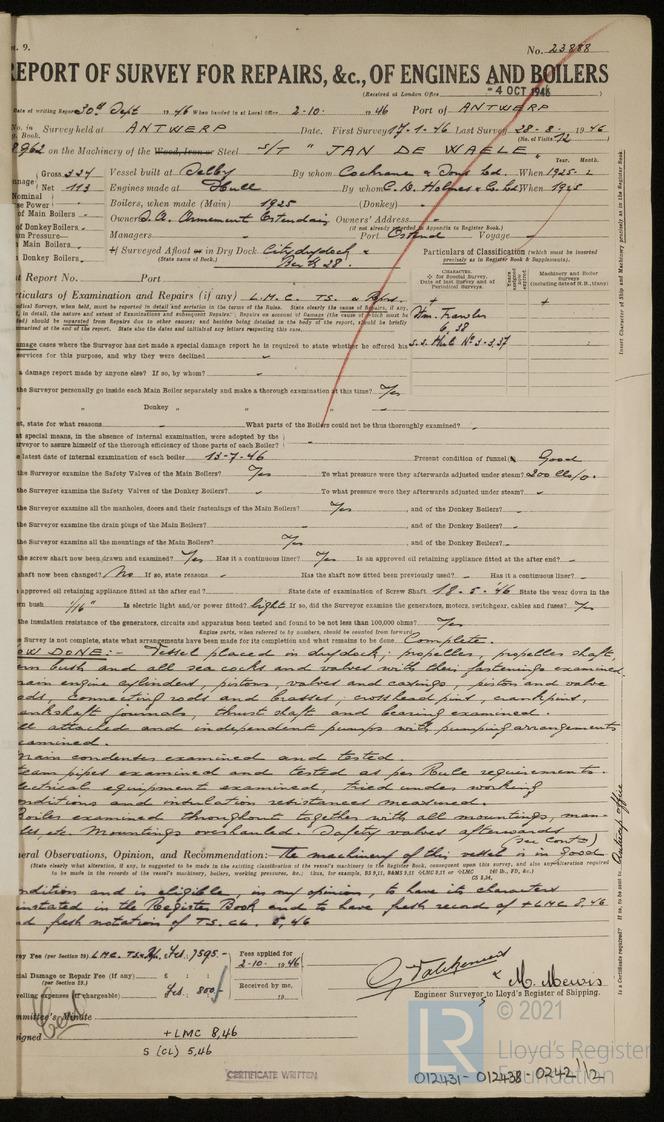 . 9.
No. 23888
REPORT OF SURVEY FOR REPAIRS, &c., OF ENGINES AND BOILERS
(Received at London Office - 4 OCT 1946 )
Date of writing Report 30th Sept 19 46 When handed in at Local Office 2-10- 19 46 Port of ANTWERP
No. in Survey held at ANTWERP Date, First Survey 17-1-46 Last Survey 28-8- 19 46
g. Book. (No. of Visits 12 )
8962 on the Machinery of the Wood, Iron or Steel S/T " JAN DE WAELE "
Year. Month.
nnage Gross 324 Vessel built at Selby By whom Cochrane & Sons Ltd. When 1925-2
Net 113 Engines made at Hull By whom C. D. Holmes & Co. Ltd When 1925
Nominal
se Power Boilers, when made (Main) 1925 (Donkey)
of Main Boilers Owners S.A. Armement Ostendais Owners' Address
(if not already recorded in Appendix to Register Book.)
of Donkey Boilers Managers Port Ostend Voyage
m Pressure
Main Boilers Surveyed Afloat or in Dry Dock City drydock &
Donkey Boilers (State name of Dock.) Berth 28
Particulars of Classification (which must be inserted precisely as in Register Book & Supplements).
t Report No. Port
CHARACTER.
for Special Survey.
Date of last Survey and of Periodical Surveys.
Machinery and Boiler Surveys
(including dates of N.B., if any)
rticulars of Examination and Repairs (if any) L.M.C. TS. & Rprs.
Stm. Trawler
6,38
s.s. Hul No 3-3,37
amage cases where the Surveyor has not made a special damage report he is required to state whether he offered his
services for this purpose, and why they were declined
a damage report made by anyone else? If so, by whom?
the Surveyor personally go inside each Main Boiler separately and make a thorough examination at this time? Yes
" " Donkey " " "
ot, state for what reasons What parts of the Boilers could not be thoroughly examined?
at special means, in the absence of internal examination, were adopted by the
rveyor to assure himself of the thorough efficiency of those parts of each Boiler?
e latest date of internal examination of each boiler 13-7-46 Present condition of funnel(s) Good
the Surveyor examine the Safety Valves of the Main Boilers? Yes To what pressure were they afterwards adjusted under steam? 200 lbs/□"
the Surveyor examine the Safety Valves of the Donkey Boilers? To what pressure were they afterwards adjusted under steam?
the Surveyor examine all the manholes, doors and their fastenings of the Main Boilers? Yes , and of the Donkey Boilers?
the Surveyor examine the drain plugs of the Main Boilers? , and of the Donkey Boilers?
the Surveyor examine all the mountings of the Main Boilers? Yes , and of the Donkey Boilers?
the screw shaft now been drawn and examined? Yes Has it a continuous liner? Yes Is an approved oil retaining appliance fitted at the after end?
shaft now been changed? No If so, state reasons Has the shaft now fitted been previously used? Has it a continuous liner?
approved oil retaining appliance fitted at the after end? State date of examination of Screw Shaft 18-5-'46 State the wear down in the
rn bush 1/16" Is electric light and/or power fitted? light If so, did the Surveyor examine the generators, motors, switchgear, cables and fuses? Yes
the insulation resistance of the generators, circuits and apparatus been tested and found to be not less than 100,000 ohms? Yes
Engine parts, when referred to by numbers, should be counted from forward.
e Survey is not complete, state what arrangements have been made for its completion and what remains to be done. Complete.
OW DONE:- Vessel placed in drydock; propeller, propeller shaft,
ern bush and all sea cocks and valves with their fastenings examined.
ain engine cylinders, pistons, valves and casings, piston and valve
ods, connecting rods and brasses, crosshead pins, crankpins,
ankshaft journals, thrust shaft and bearing examined
ll attached and independent pumps with pumping arrangements
examined.
main condenser examined and tested
team pipes examined and tested as per Rule requirements.
lectrical equipment examined, tried under working
onditions and insulation resistances measured.
Boiler examined throughout together with all mountings, man-
les, etc. Mountings overhauled. Safety valves afterwards
(see cont:)
eral Observations, Opinion, and Recommendation:- The machinery of this vessel is in good
(State clearly what alteration, if any, is suggested to be made in the existing classification of the vessel's machinery in the Register Book, consequent upon this survey, and also any alteration required
to be made in the records of the vessel's machinery, boilers, working pressures, &c.;
ndition and is eligible, in my opinion, to have its characters
instated in the Register Book and to have fresh record of +LMC 8,46
nd fresh notation of T.S. CL. 5,46
vey Fee (per Section 29) LMC. TS & Rp. Fcs. 7595.- Fees applied for
2-10- 19 46
cial Damage or Repair Fee (if any) £ : :
(per Section 29.)
velling expenses (if chargeable) Fcs. 800/- Received by me,
19
& M. Mewis
Engineer Surveyors to Lloyd's Register of Shipping.
mmittee's Minute
signed +LMC 8,46
S (CL) 5,46
CERTIFICATE WRITTEN
Insert Character of Ship and Machinery precisely as in the Register Book.
Is a Certificate required? If so, to be sent to Antwerp Office
© 2021
LR
Lloyd's Register
Foundation
012431-012438-0242 1/2